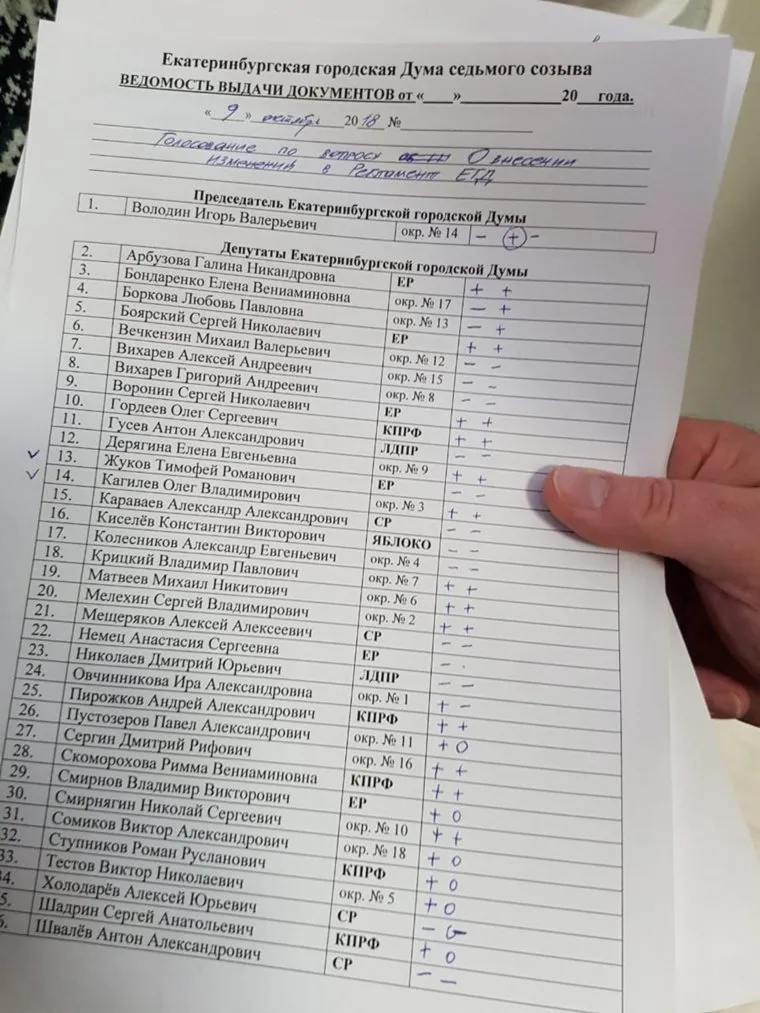 Екатеринбургская городская Дума седьмого созыва
ВЕДОМОСТЬ ВЫДАЧИ ДОКУМЕНТОВ от «___»____________20__года.
« 9 » октября 2018 №
Голосование по вопросу О внесении
изменений в Регламент ЕГД
Председатель Екатеринбургской городской Думы
1. Володин Игорь Валерьевич окр. № 14 − + −
Депутаты Екатеринбургской городской Думы
2. Арбузова Галина Никандровна ЕР + +
3. Бондаренко Елена Вениаминовна окр. № 17 − +
4. Боркова Любовь Павловна окр. № 13 − +
5. Боярский Сергей Николаевич ЕР + +
6. Вечкензин Михаил Валерьевич окр. № 12 − −
7. Вихарев Алексей Андреевич окр. № 15 − −
8. Вихарев Григорий Андреевич окр. № 8 − −
9. Воронин Сергей Николаевич ЕР + +
10. Гордеев Олег Сергеевич КПРФ + +
11. Гусев Антон Александрович ЛДПР − −
12. Дерягина Елена Евгеньевна окр. № 9 + +
✓ 13. Жуков Тимофей Романович ЕР − −
✓ 14. Кагилев Олег Владимирович окр. № 3 + +
15. Караваев Александр Александрович СР − −
16. Киселёв Константин Викторович ЯБЛОКО − −
17. Колесников Александр Евгеньевич окр. № 4 − −
18. Крицкий Владимир Павлович окр. № 7 + +
19. Матвеев Михаил Никитович окр. № 6 + +
20. Мелехин Сергей Владимирович окр. № 2 + +
21. Мещеряков Алексей Алексеевич СР − −
22. Немец Анастасия Сергеевна ЕР − .
23. Николаев Дмитрий Юрьевич ЛДПР − −
24. Овчинникова Ира Александровна окр. № 1 + −
25. Пирожков Андрей Александрович КПРФ + +
26. Пустозеров Павел Александрович окр. № 11 + 0
27. Сергин Дмитрий Рифович окр. № 16 + +
28. Скоморохова Римма Вениаминовна КПРФ + +
29. Смирнов Владимир Викторович ЕР + 0
30. Смирнягин Николай Сергеевич окр. № 10 + +
31. Сомиков Виктор Александрович окр. № 18 + 0
32. Ступников Роман Русланович КПРФ + 0
33. Тестов Виктор Николаевич окр. № 5 + 0
34. Холодарёв Алексей Юрьевич СР −
5. Шадрин Сергей Анатольевич КПРФ + 0
6. Швалёв Антон Александрович СР − −